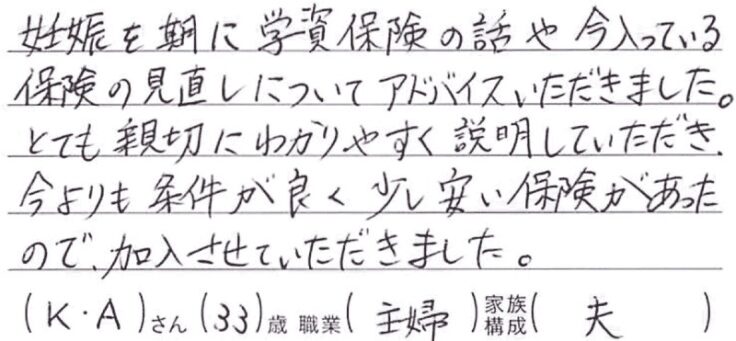 妊娠を期に学資保険の話や今入っている
保険の見直しについてアドバイスいただきました。
とても親切にわかりやすく説明していただき、
今よりも条件が良く少し安い保険があった
ので、加入させていただきました。
(K・A)さん(33)歳 職業(主婦)家族構成(夫)